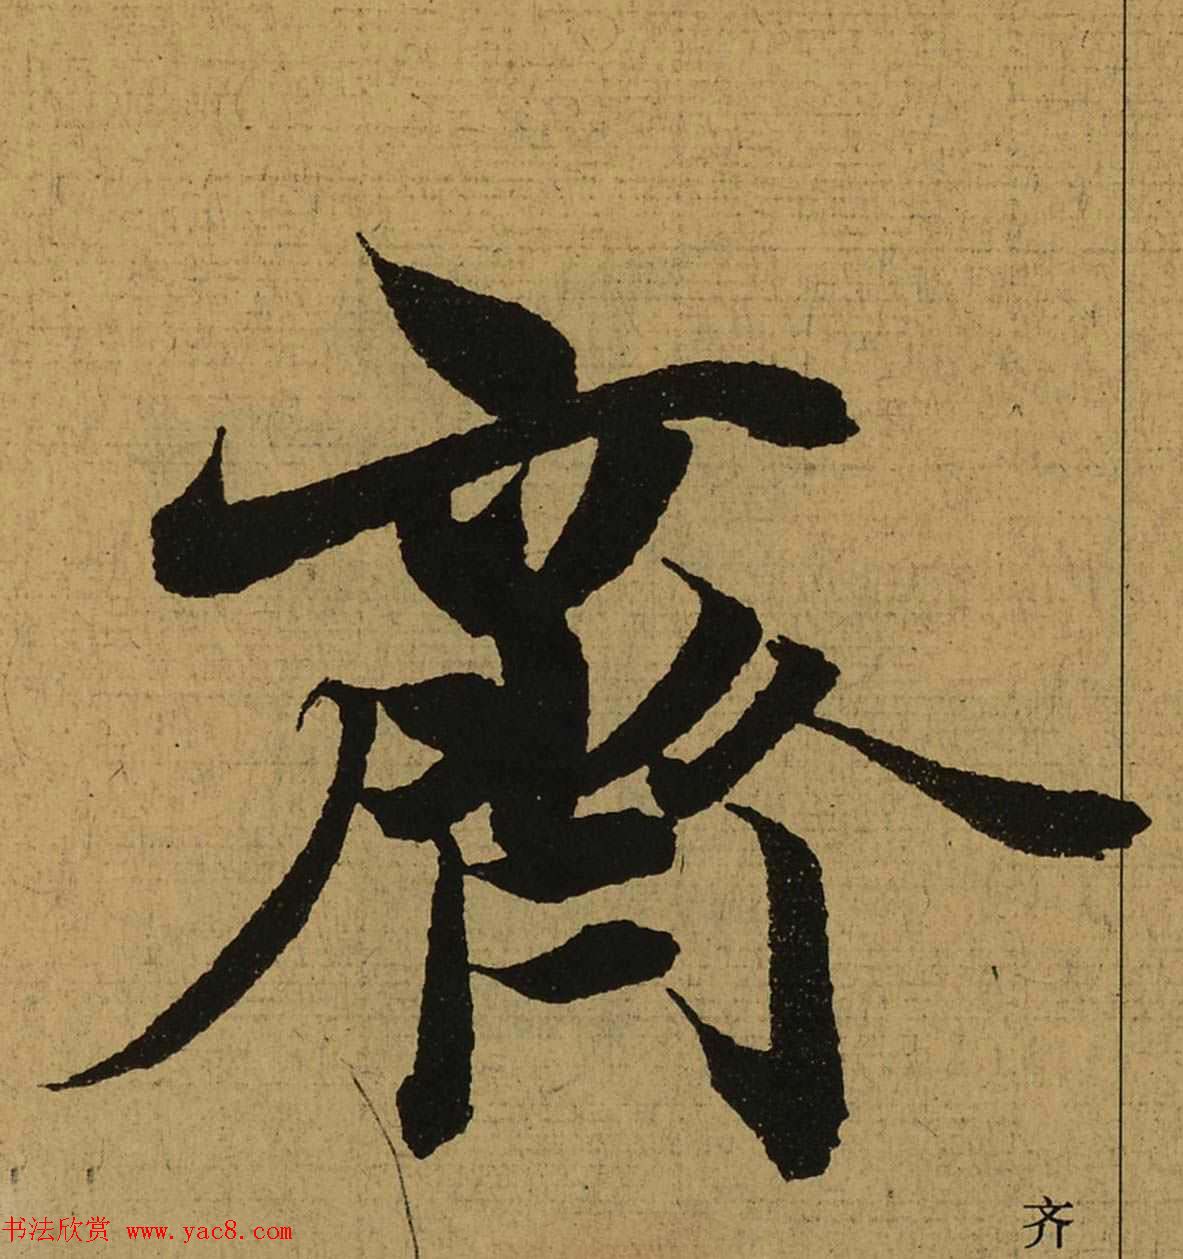 齊
齐
书法欣赏 www.yac8.com